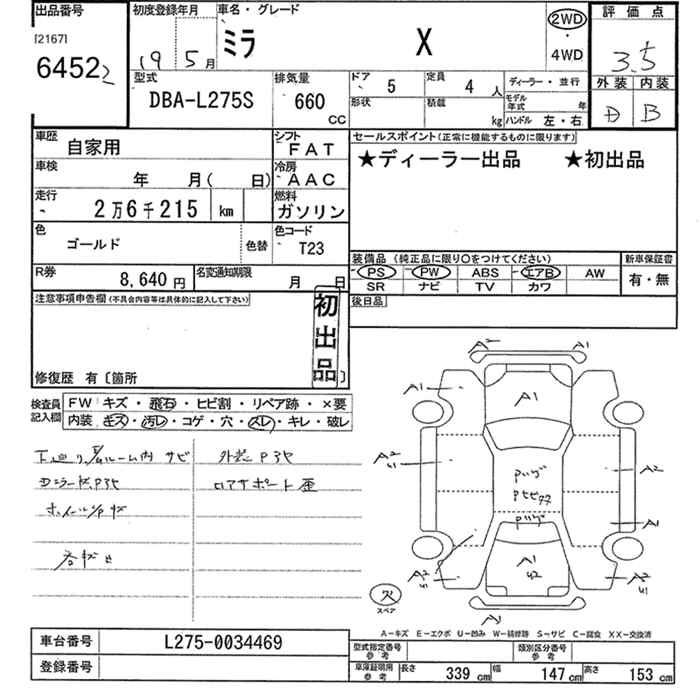 出品番号
[2167]
6452 2
初度登録年月
19 5月
車名・グレード
ミラ X
2WD
・
4WD
評価点
3.5
外装 内装
D B
型式
DBA-L275S
排気量
660 CC
ドア 5
定員 4 人
形状
積載 kg
ディーラー・並行
モデル年式 年
ハンドル 左・右
車歴
自家用
シフト
FAT
車検
年 月( 日)
冷房
AAC
走行
2万6千215 km
燃料
ガソリン
色
ゴールド
色替
色コード
T23
R券
8,640円
名変通知期限
月 日
セールスポイント(正常に機能するものに限ります)
★ディーラー出品 ★初出品
装備品 (純正品に限り○をつけてください)
PS PW ABS エアB AW
SR ナビ TV カワ
新車保証書
有・無
後日品
注意事項申告欄(不具合内容等は具体的に記入して下さい)
初出品
修復歴 有〔箇所 〕
検査員記入欄
FW キズ・飛石・ヒビ割・リペア跡・×要
内装 キズ・汚レ・コゲ・穴・スレ・キレ・破レ
サビ
ロアサポート歪
A2 A1
A1 A1
A2 U1 A2
A1
A1 U2
A2 U1 A2 U1
A1
スペア
A-キズ E-エクボ U-凹み W-補修跡 S-サビ C-腐食 XX-交換済
車台番号
L275-0034469
登録番号
型式指定番号 参考
類別区分番号 参考
車庫証明用 参考
長さ 339 cm 幅 147 cm 高さ 153 cm